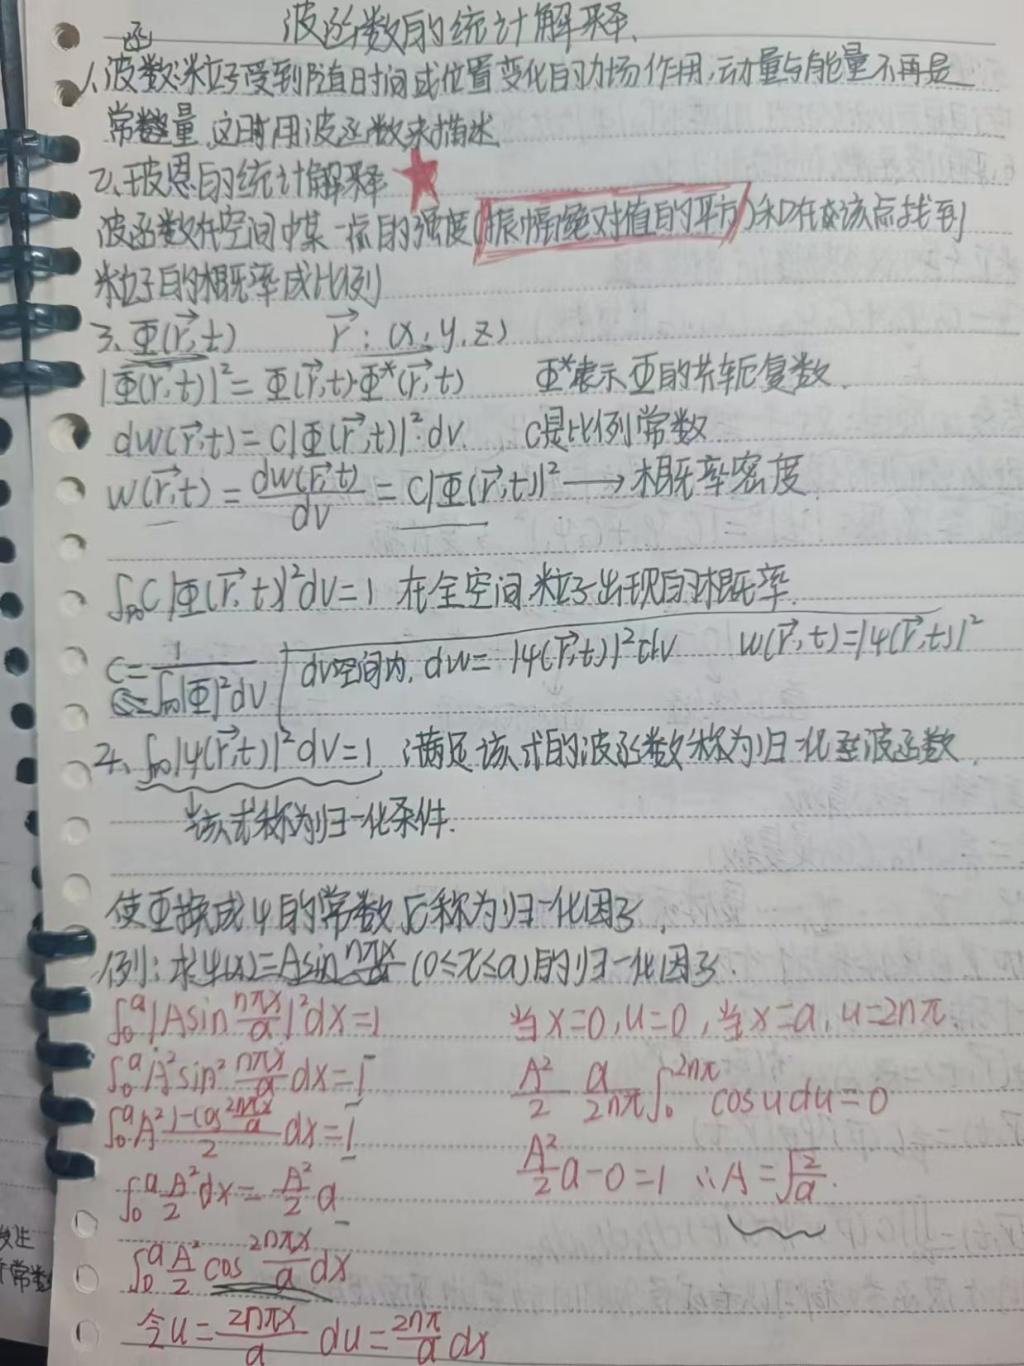 波函数的统计解释.
1、波函数:粒子受到随时间或位置变化的力场作用,动量与能量不再是
常量,这时用波函数来描述
2、玻恩的统计解释 ★
波函数在空间中某一点的强度(振幅绝对值的平方)和在该点找到
粒子的概率成比例
3、Φ(r⃗,t) r⃗:(x,y,z)
|Φ(r⃗,t)|² = Φ(r⃗,t)·Φ*(r⃗,t) Φ*表示Φ的共轭复数.
dw(r⃗,t) = C|Φ(r⃗,t)|²·dv. C是比例常数
w(r⃗,t) = dw(r⃗,t)/dv = C|Φ(r⃗,t)|² → 概率密度.
∫∞C|Φ(r⃗,t)|²dv=1 在全空间粒子出现的概率.
C=1/∫∞|Φ|²dv dv空间内, dw= |ψ(r⃗,t)|²dv w(r⃗,t)=|ψ(r⃗,t)|²
4、∫∞|ψ(r⃗,t)|²dv=1 满足该式的波函数称为归一化波函数.
该式称为归一化条件.
使Φ换成ψ的常数√C称为归一化因子.
例:求ψ(x)=Asin nπx/a (0≤x≤a)的归一化因子.
∫₀ᵃ|Asin nπx/a|²dx=1 当x=0,u=0,当x=a,u=2nπ.
∫₀ᵃA²sin² nπx/a dx=1 A²/2 a/2nπ ∫₀²ⁿᵖⁱ cosudu=0
∫₀ᵃA² (1-cos 2nπx/a)/2 dx=1 A²/2 a-0=1 ∴A=√(2/a).
∫₀ᵃ A²/2 dx= A²/2 a
∫₀ᵃ A²/2 cos 2nπx/a dx
令u= 2nπx/a du= 2nπ/a dx